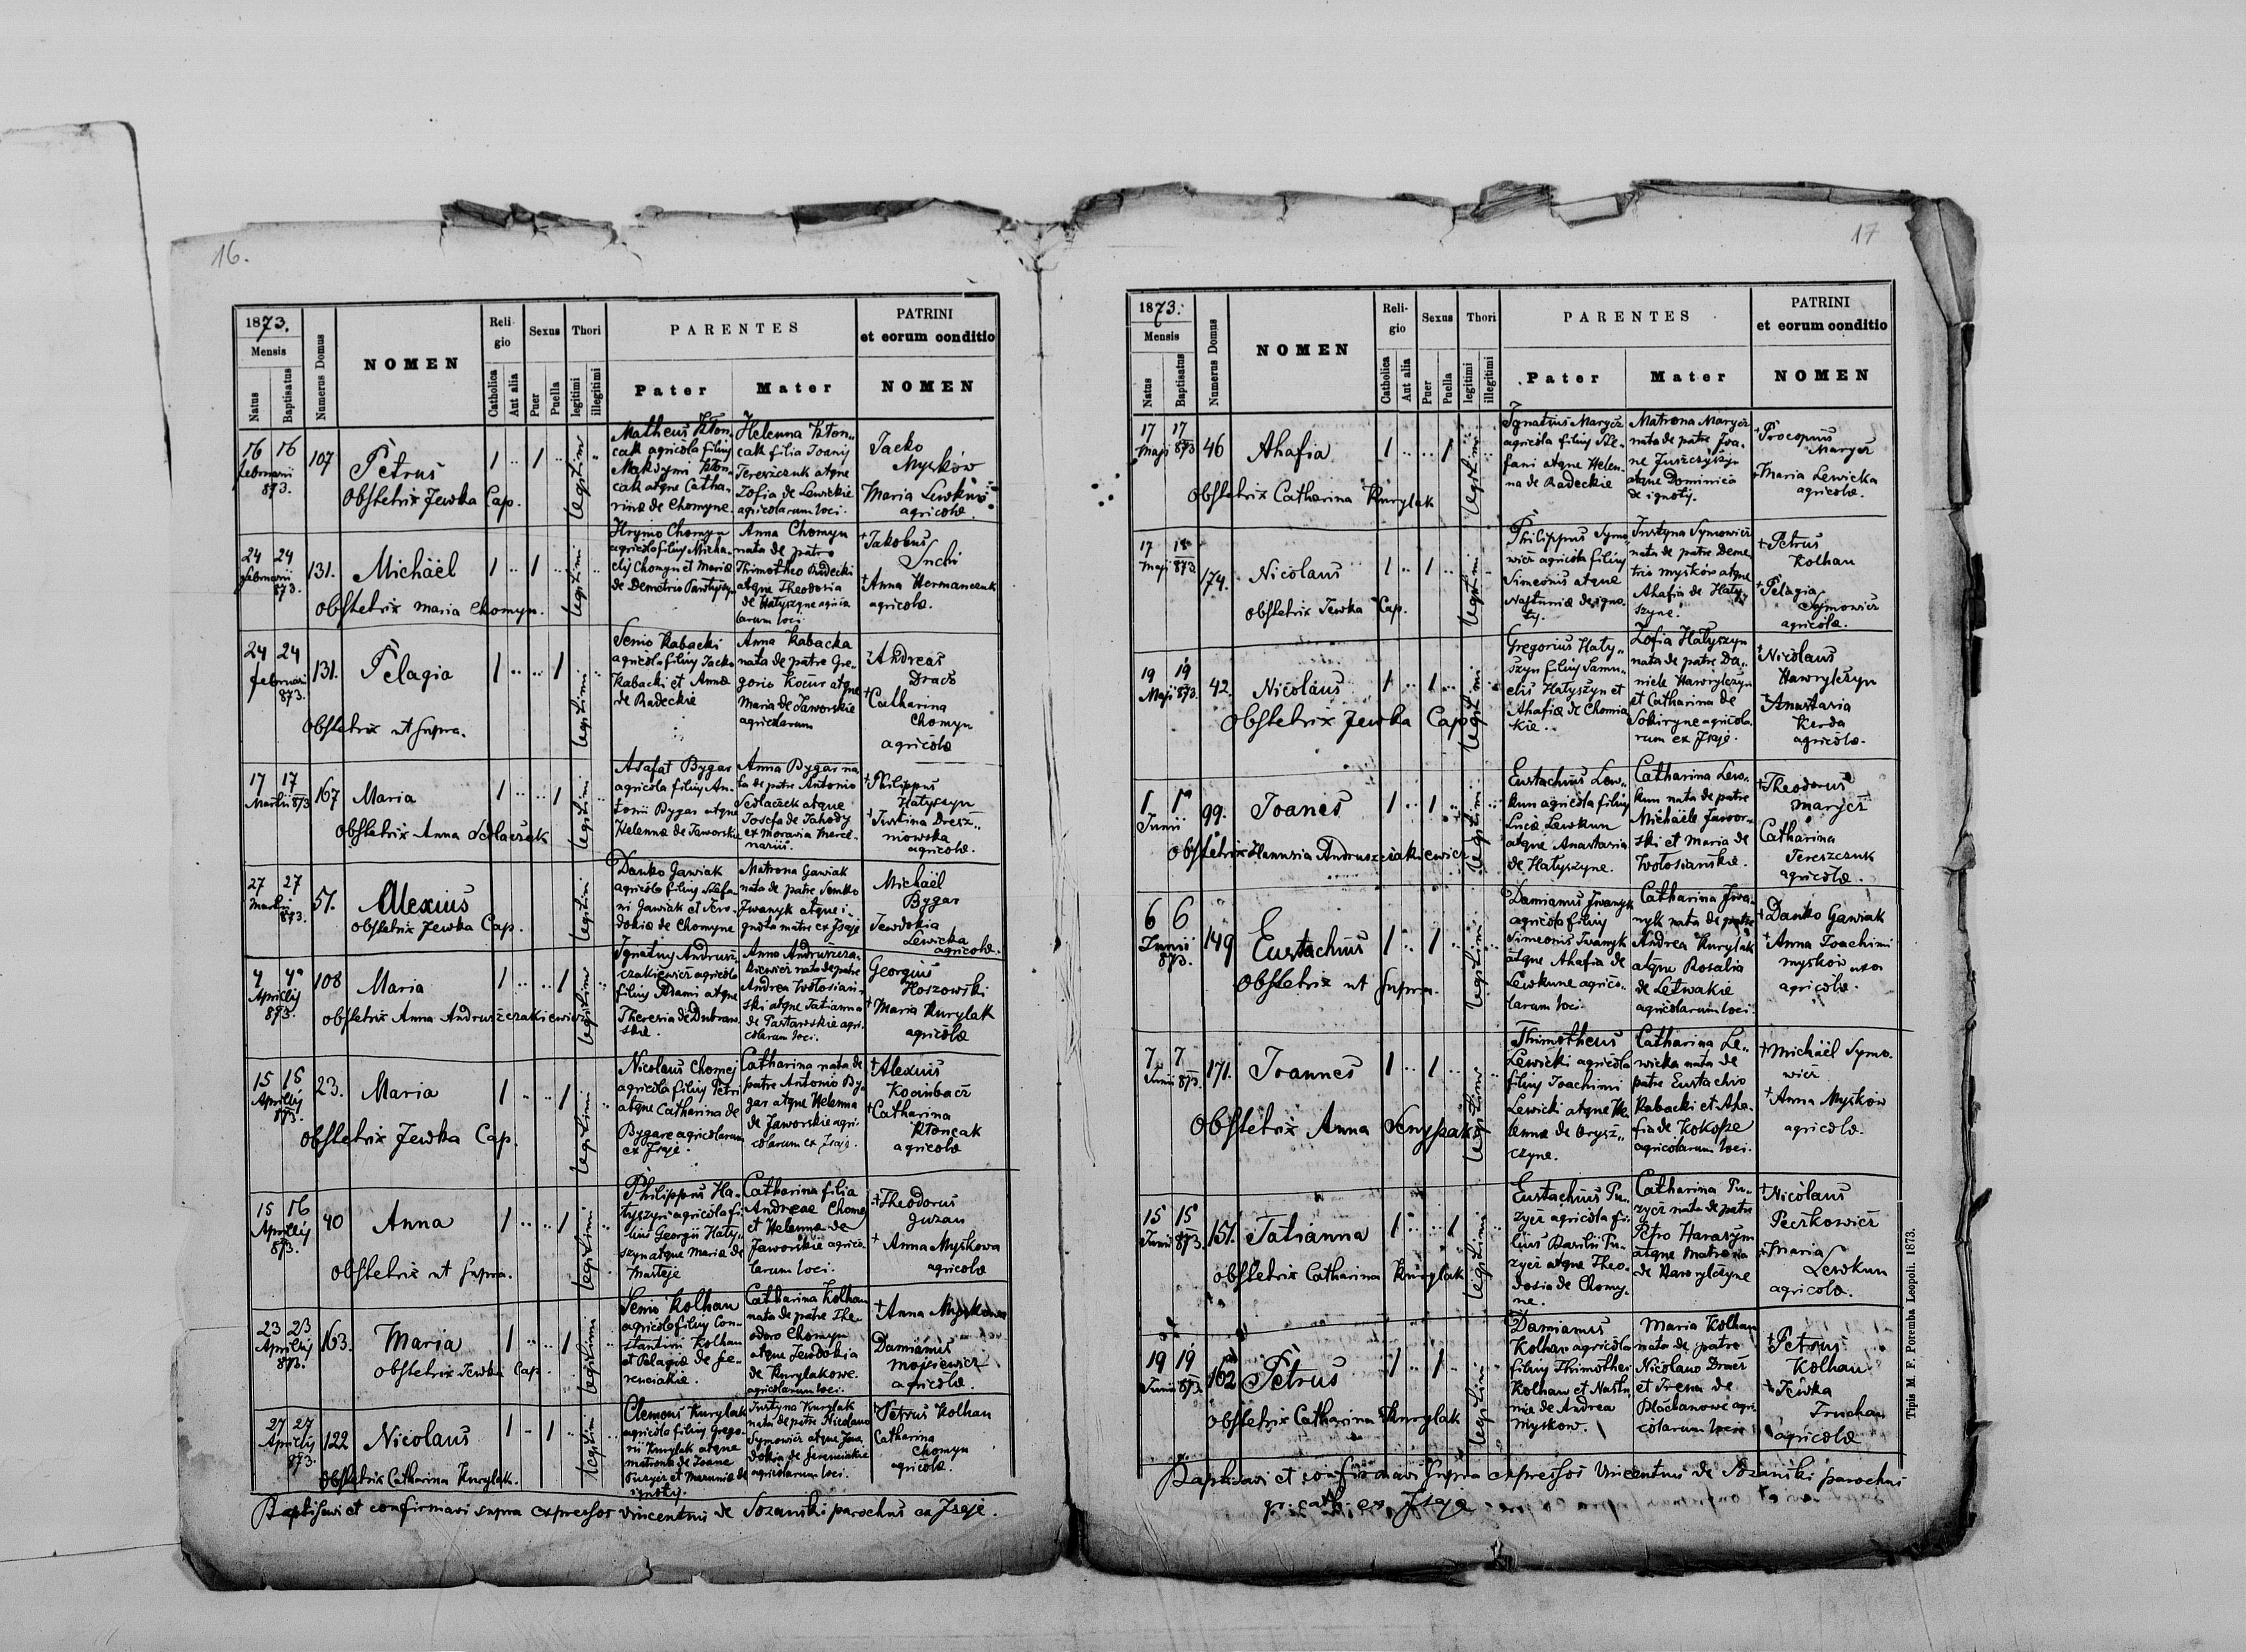 16.
1873.
Mensis
Natus
Baptisatus
Numerus Domus
NOMEN
Reli-
gio
Catholica
Aut alia
Sexus
Puer
Puella
Thori
legitimi
illegitimi
PARENTES
Pater
Mater
PATRINI
et eorum conditio
NOMEN
16 16
februarii
873.
107
Petrus
Obstetrix Jewka Cap.
legitimi
Matheus Kłon-
cak agricola filius
Maksymi Kłon-
cak atque Catha-
rinæ de Chomyne.
Helenna Kłon-
cak filia Joanis
Tereszczuk atque
Zofia de Lewickie
agricolarum loci.
Jacko
Myskow
Maria Lewkun
agricolæ.
24 24
februarii
873.
131.
Michaël
Obstetrix Maria Chomyn.
legitimi
Hrynio Chomyn
agricola filius Micha-
elis Chomyn et Mariæ
de Demetrio
Anna Chomyn
nata de patre
Thimotheo Radecki
atque Theodosia
de Hatyszyne agrico-
larum loci.
†Jakobus
†Anna Hermanczuk
agricolæ.
24 24
februarii
873.
131.
Pelagia
Obstetrix ut supra.
legitimi
Senio Rabacki
agricola filius Jacko
Rabacki et Annæ
de Radeckie
Anna Rabacka
nata de patre Gre-
gorio Kocur atque
Maria de Jaworskie
agricolarum
†Andreas
Dracz
†Catharina
Chomyn
agricolæ
17 17
Martii 873
167
Maria
Obstetrix Anna Sedlaczek
legitimi
Asafat Bygar
agricola filius An-
tonii Bygar atque
Helennæ de Jaworskie
Anna Bygar na-
ta de patre Antonio
Sedlaczek atque
Josefa de Jahody
ex Moravia merce-
nariis.
†Philippus
Hatyszyn
†Justina Dresz-
niowska
agricolæ.
27 27
Martii
873.
57.
Alexius
Obstetrix Jewka Cap.
legitimi
Danko Gawiak
agricola filius Stefa-
ni Gawiak et Jew-
dokiæ de Chomyne
Matrona Gawiak
nata de patre Semko
Jwanyk atque i-
gnota matre ex Jsaje
Michaël
Bygar
Jewdokia
Lewicka
agricolæ.
4 4
Aprilis
873.
108
Maria
Obstetrix Anna Andruszczakiewicz
legitimi
Ignatius Andrusz-
czakiewicz agricola
filius Adami atque
Theresiæ de Dubraw-
skie.
Anna Andruszcza-
kiewicz nata de patre
Andrea Wołosian-
ski atque Tatianna
de agri-
colarum loci.
Georgius
Hoszowski
†Maria Kurylak
agricolæ
15 15
Aprilis
873.
23.
Maria
Obstetrix Jewka Cap.
legitimi
Nicolaus Chomej
agricola filius Petri
atque Catharina de
Bygare agricolarum
ex Jsaje.
Catharina nata de
patre Antonio By-
gar atque Helenna
de Jaworskie agri-
colarum ex Jsaje.
†Alexius
†Catharina
Kłoncak
agricolæ
15 16
Aprilis
873.
40
Anna
Obstetrix ut supra.
legitimi
Philippus Ha-
tyszyn agricola fi-
lius Georgii Haty-
szyn atque Mariæ de
Masteje
Catharina filia
Andreae Chome
et Helenna de
Jaworskie agrico-
larum loci.
†Theodorus
Juzan
†Anna Myskowa
agricolæ
23 23
Aprilis
873.
163.
Maria
Obstetrix Jewka Cap.
legitimi
Senio Kolhan
agricola filius Con-
stantini Kolhan
et Pelagiæ de Je-
renciakie.
Catharina Kolhan
nata de patre The-
odoro Chomyn
atque Jewdokia
de Kurylakowe.
agricolarum loci.
†Anna Myskowa
Damianus
Mojsiewicz
agricolæ.
27 27
Aprilis
873.
122
Nicolaus
Obstetrix Catharina Kurylak.
legitimi
Clemens Kurylak
agricola filius Grego-
rii Kurylak atque
Matronæ de Joane
Puzycz et Maruniæ de
ignoty.
Justyna Kurylak
nata de patre Nicolauo
Symowicz atque Jew-
dokia de Jeremiakie
agricolarum loci.
†Petrus Kolhan
Catharina
Chomyn
agricolæ.
Baptisavi et confirmavi supra expressos Vincentius de Sozanski parochus ex Jsaje.
17
1873.
Mensis
Natus
Baptisatus
Numerus Domus
NOMEN
Reli-
gio
Catholica
Aut alia
Sexus
Puer
Puella
Thori
legitimi
illegitimi
PARENTES
Pater
Mater
PATRINI
et eorum conditio
NOMEN
17 17
Maji 873
46
Ahafia
Obstetrix Catharina Kurylak
legitimi
Ignatius Marycz
agricola filius Ste-
fani atque Helen-
na de Radeckie
Matrona Marycz
nata de patre Jva-
ne Juszczyszyn
atque Dominica
de ignoty.
†Procopius
Marycz
†Maria Lewicka
agricolæ.
17 18
Maji 873.
174.
Nicolaus
Obstetrix Jewka Cap.
legitimi
Philippus Symo-
wicz agricola filius
Simeonis atque
Nastuniæ de igno-
ty.
Justyna Symowicz
nata de patre Deme-
trio Myskow atque
Ahafia de Haty-
szyne.
†Petrus
Kolhan
†Pelagia
Symowicz
agricolæ.
19 19
Maji 873.
42.
Nicolaus
Obstetrix Jewka Cap.
legitimi
Gregorius Haty-
szyn filius Samu-
elis Hatyszyn et
Ahafiæ de Chomia-
kie.
Zofia Hatyszyn
nata de patre Da-
niele Hawrylczyn
et Catharina de
Sokiryne agricola-
rum ex Jsaje.
†Nicolaus
Hawrylczyn
†Anastasia
Kerda
agricolæ.
1 1
Junii
99.
Joanes
Obstetrix Hannusia Andruszciakiewicz
legitimi
Eustachius Lew-
kun agricola filius
Lucæ Lewkun
atque Anastasia
de Hatyszyne.
Catharina Lew-
kun nata de patre
Michaële Jawor-
ski et Maria de
Wołosianskie.
†Theodorus
Marycz
Catharina
Tereszczuk
agricolæ.
6 6
Junii
873.
149
Eustachius
Obstetrix ut supra.
legitimi
Damianus Jwanyk
agricola filius
Simeonis Jwanyk
atque Ahafia de
Lewkune agrico-
larum loci.
Catharina Jwa-
nyk nata de patre
Andrea Kurylak
atque Rosalia
de Letwakie
agricolarum loci.
†Danko Gawiak
†Anna Joachimi
Myskow uxor
agricolæ.
7 7
Junii 873.
171.
Joannes
Obstetrix Anna
legitimi
Thimotheus
Lewicki agricola
filius Joachimi
Lewicki atque He-
lenna de Orysz-
czyne.
Catharina Le-
wicka nata de
patre Eustachio
Rabacki et Aha-
fia de Kokoße
agricolarum loci.
†Michaël Symo-
wicz
†Anna Myskow
agricolæ.
15 15
Junii 873
151.
Tatianna
Obstetrix Catharina Kurylak
legitimi
Eustachius Pu-
zycz agricola fi-
lius Basilii Pu-
zycz atque Theo-
dosia de Chomy-
ne.
Catharina Pu-
zycz nata de patre
Petro Harasym
atque Matrona
de Hawrylczyne
†Nicolaus
Peczkowicz
†Maria
Lewkun
agricolæ.
19 19
Junii 873.
162
Petrus
Obstetrix Catharina Kurylak
legitimi
Damianus
Kolhan agricola
filius Thimothei
Kolhan et Nastu-
niæ de Andrea
Myskow.
Maria Kolhan
nata de patre
Nicolauo Dracz
et Irena de
Blachanowe agri-
colarum loci
†Petrus
Kolhan
†Jewka
Truchan
agricolæ
Baptisavi et confirmavi supra expressos Vincentius de Sozanski parochus
gr. cath. ex Jsaje
Tipis M. F. Poremba Leopoli. 1873.